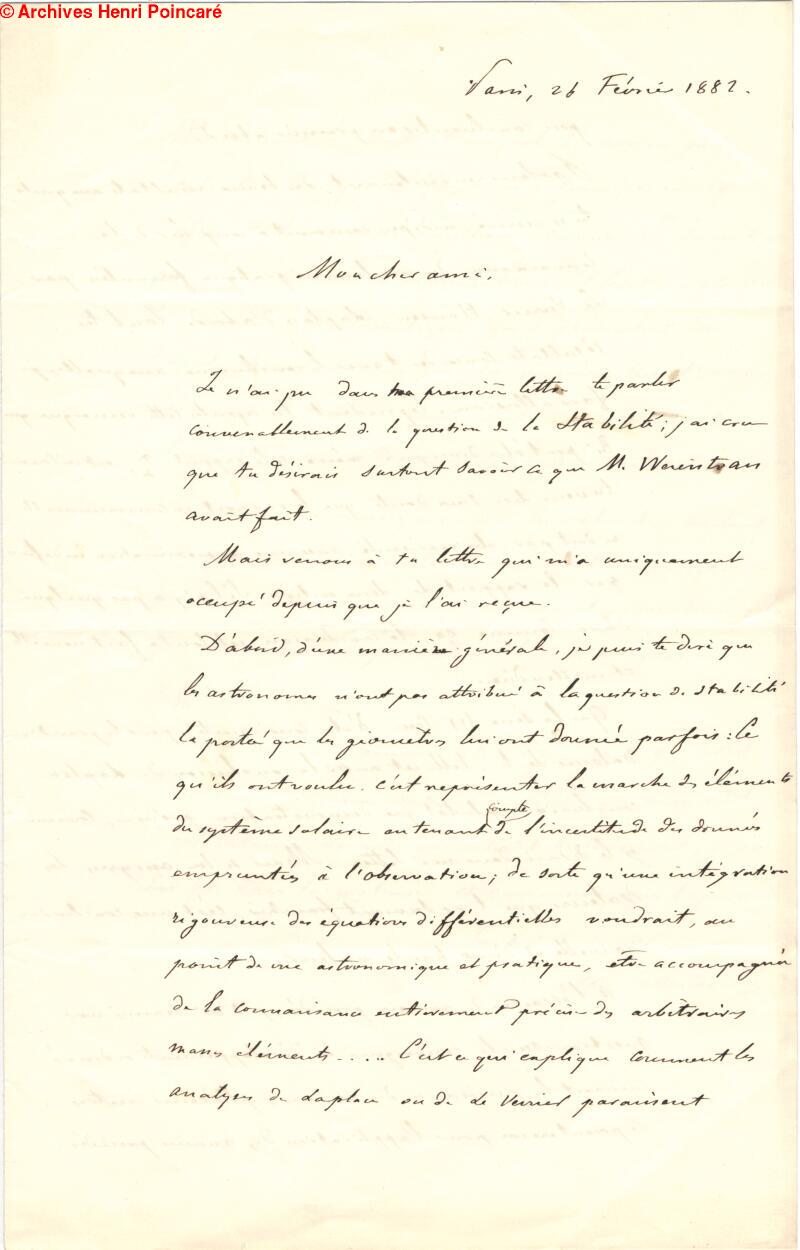 © Archives Henri Poincaré
Paris, 26 Février 1882.
Mon cher ami,
Je n'ai pu dans ma première lettre te parler
convenablement de la question de la Stabilité; j'ai cru
que tu désirais surtout savoir ce que M. Weierstrass
avait fait.
Mais venons à ta lettre qui m'a uniquement
occupé depuis que je l'ai reçue.
D'abord, d'une manière générale, je puis te dire que
les astronomes n'ont pas attribué à la question de stabilité
la portée que les géomètres lui ont donnée parfois : Ce
qu'ils ont voulu c'est représenter la marche des éléments
du système solaire en tenant compte de l'incertitude des données
empruntées à l'observation; de sorte qu'une intégration
rigoureuse des équations différentielles voudrait, au
point de vue astronomique et pratique, être accompagnée
de la connaissance entièrement précise des arbitraires
masses éléments..... C'est ce qui explique comment les
analyses de Laplace ou de Le Verrier paraissent